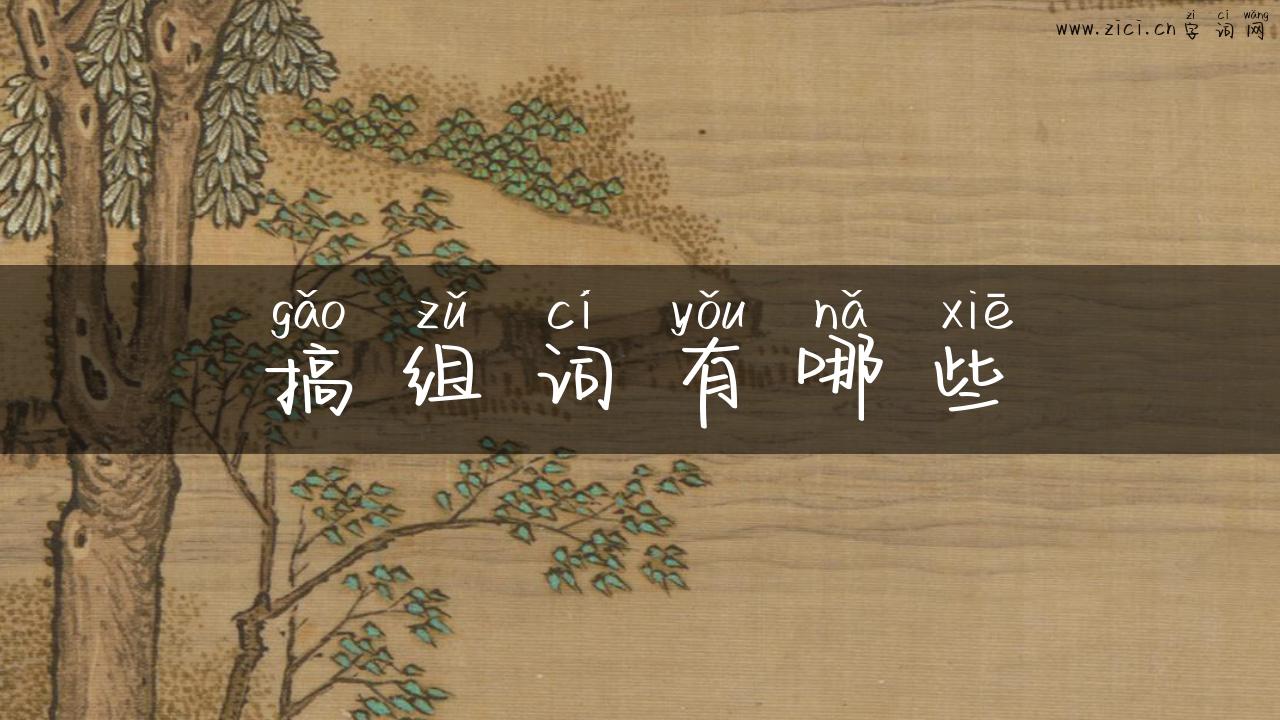 zì cí wǎng
www.zici.cn 字词网
gǎo zǔ cí yǒu nǎ xiē
搞组词有哪些